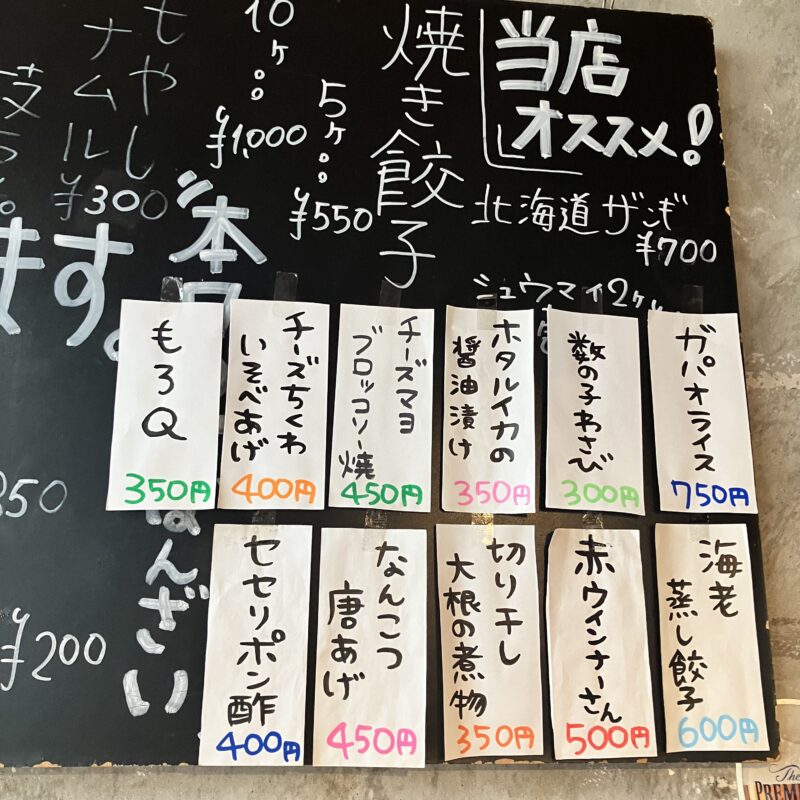 当店
オススメ!
北海道ザンギ
¥700
シュウマイ2ヶ
焼き餃子
5ヶ
¥550
10ヶ
¥1,000
もやし
ナムル
¥300
ます。
¥200
ガパオライス
750円
数の子わさび
300円
ホタルイカの
醤油漬け
350円
チーズマヨ
ブロッコリー焼
450円
チーズちくわ
いそべあげ
400円
もろQ
350円
海老
蒸し餃子
600円
赤ウインナーさん
500円
切り干し
大根の煮物
350円
なんこつ
唐あげ
450円
セセリポン酢
400円